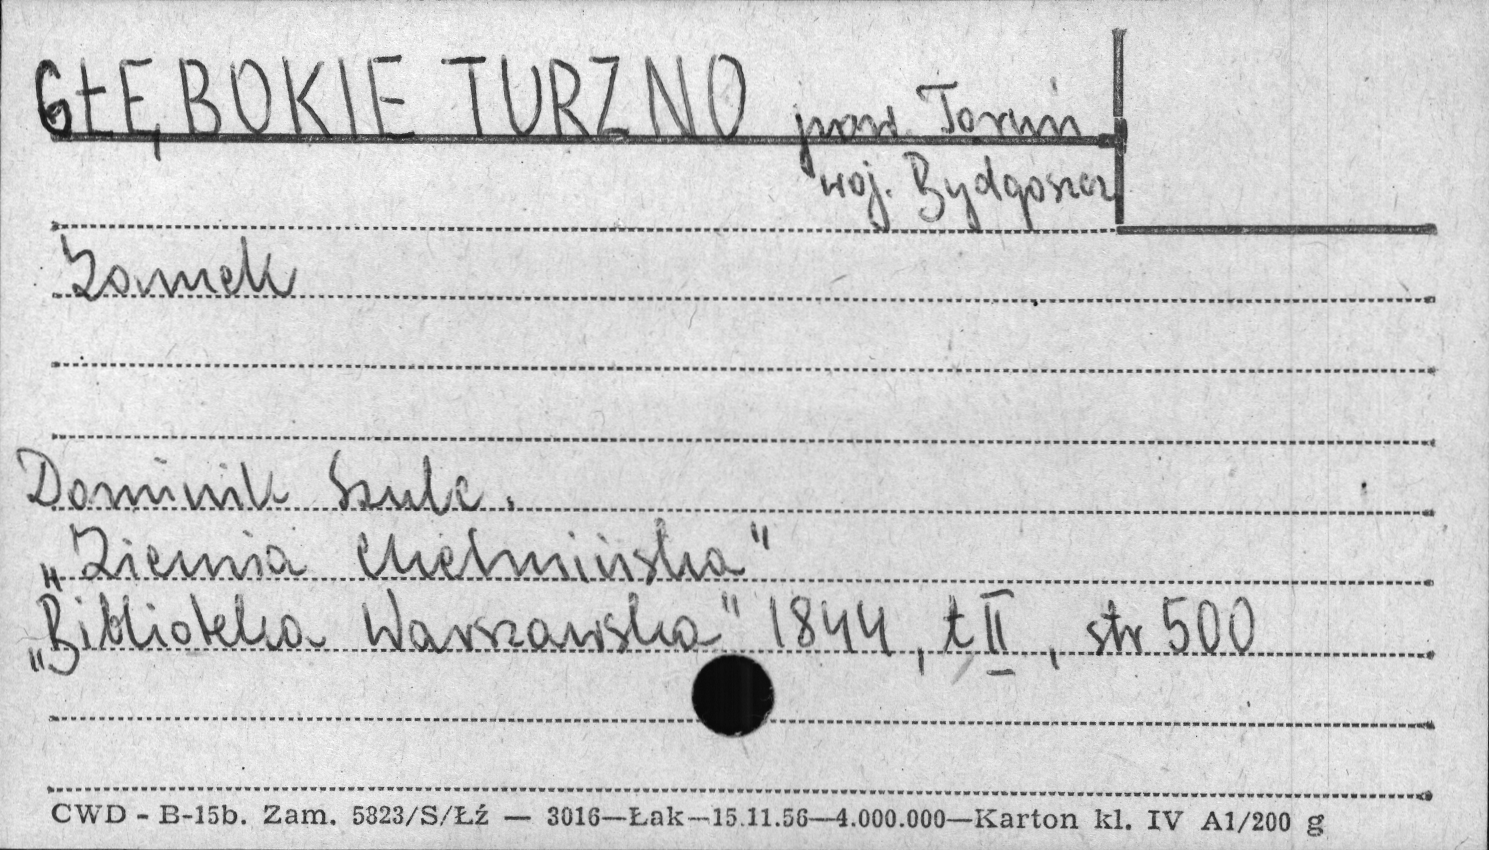 GŁĘBOKIE TURZNO pow. Toruń
woj. Bydgoszcz
Zamek
Dominik Szulc.
„Ziemia Chełmińska"
„Biblioteka Warszawska" 1844, t II, str 500
CWD - B-15b. Zam. 5823/S/Łź — 3016—Łak—15.11.56—4.000.000—Karton kl. IV A1/200 g